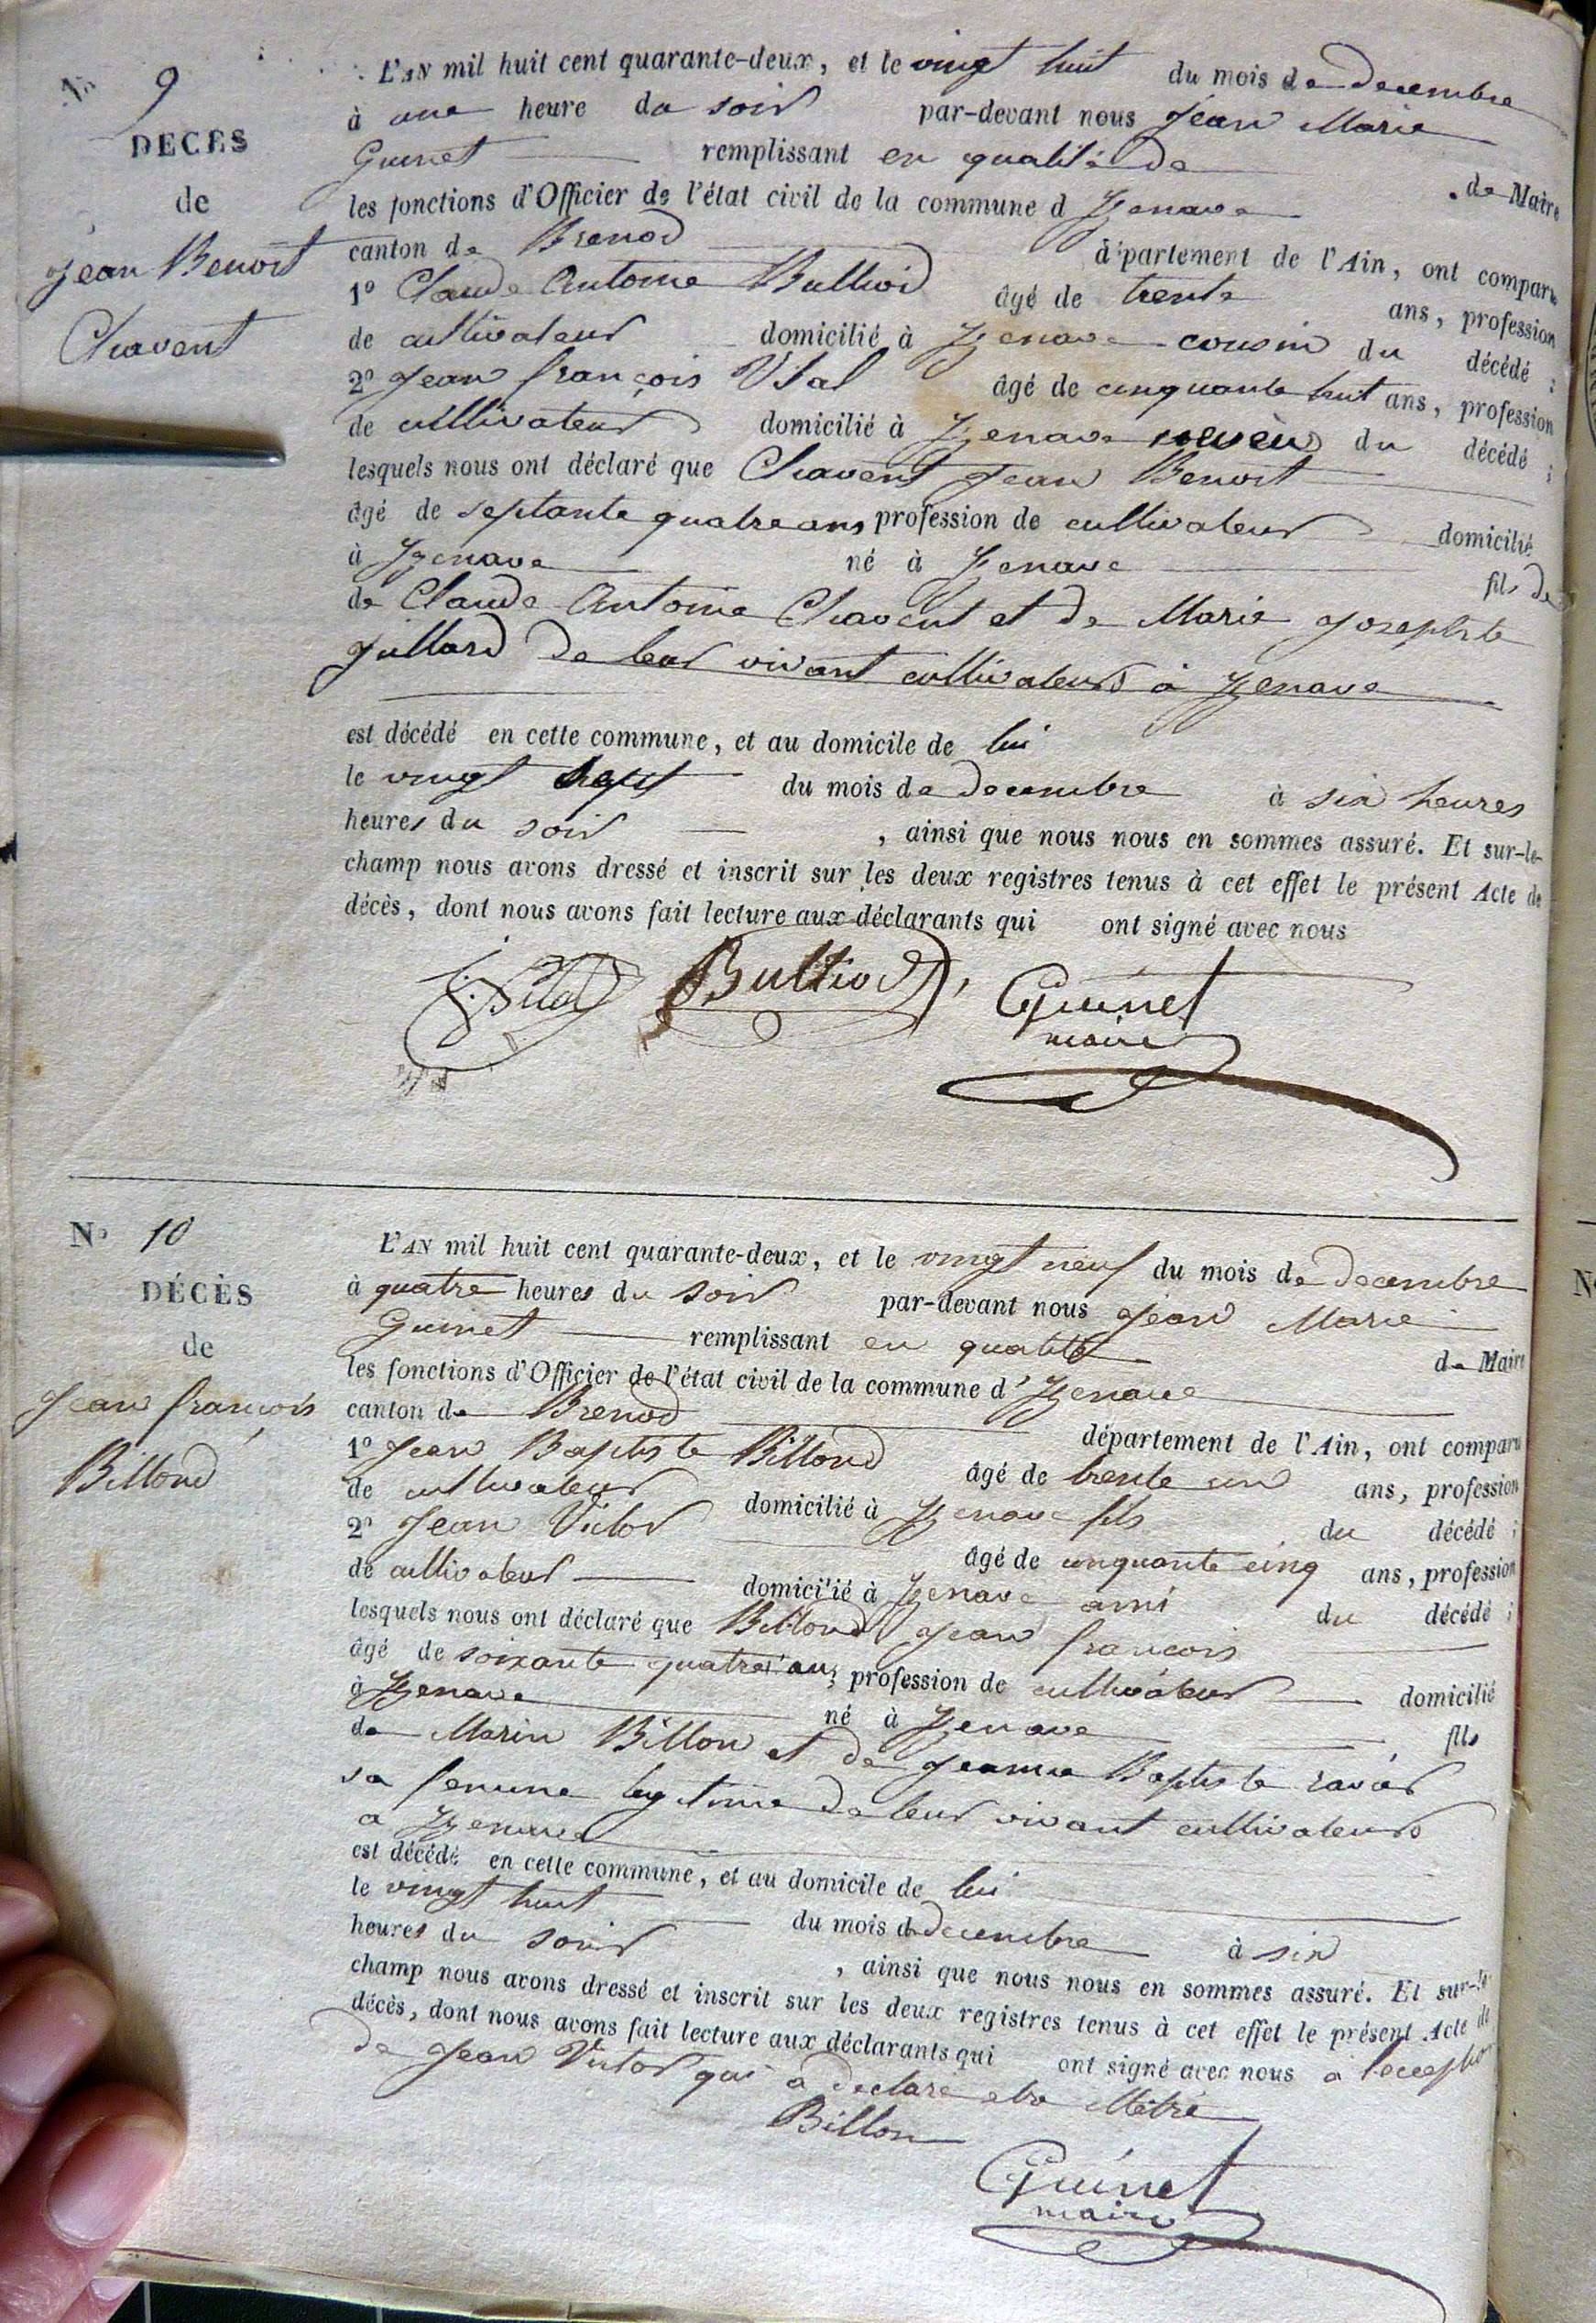 N° 9
DÉCÈS
de
Jean Benoit
Chavent
L'AN mil huit cent quarante-deux, et le vingt huit du mois de Decembre
à une heure du soir par-devant nous Jean Marie
Guinet remplissant en qualité de de Maire
les fonctions d'Officier de l'état civil de la commune d Izenave
canton de Brenod département de l'Ain, ont comparu
1° Claude Antoine Bulliod âgé de trente ans, profession
de cultivateur domicilié à Izenave cousin du décédé ;
2° Jean françois Vital âgé de cinquante huit ans, profession
de cultivateur domicilié à Izenave neveu du décédé ;
lesquels nous ont déclaré que Chavent Jean Benoit
âgé de septante quatre ans profession de cultivateur domicilié
à Izenave né à Izenave fils de
de Claude Antoine Chavent et de Marie Josephte
Juillard de leur vivant cultivateurs à Izenave
est décédé en cette commune, et au domicile de lui
le vingt sept du mois de Decembre à six heures
heures du soir , ainsi que nous nous en sommes assuré. Et sur-le-
champ nous avons dressé et inscrit sur les deux registres tenus à cet effet le présent Acte de
décès, dont nous avons fait lecture aux déclarants qui ont signé avec nous
Bulliod Guinet
maire
N° 10
DÉCÈS
de
Jean françois
Billond
L'AN mil huit cent quarante-deux, et le vingt neuf du mois de Decembre
à quatre heures du soir par-devant nous Jean Marie
Guinet remplissant en qualité de Maire
les fonctions d'Officier de l'état civil de la commune d' Izenave
canton de Brenod département de l'Ain, ont comparu
1° Jean Baptiste Billond âgé de trente un ans, profession
de cultivateur domicilié à Izenave fils du décédé ;
2° Jean Victor âgé de cinquante cinq ans, profession
de cultivateur domicilié à Izenave ami du décédé ;
lesquels nous ont déclaré que Billond Jean francois
âgé de soixante quatre ans profession de cultivateur domicilié
à Izenave né à Izenave fils
de Marin Billon et de Jeanne Baptiste ravier
sa femme legitime de leur vivant cultivateurs
a Izenave
est décédé en cette commune, et au domicile de lui
le vingt huit du mois de Decembre à six
heures du soir , ainsi que nous nous en sommes assuré. Et sur-le
champ nous avons dressé et inscrit sur les deux registres tenus à cet effet le présent Acte de
décès, dont nous avons fait lecture aux déclarants qui ont signé avec nous a l'exception
de Jean Victor qui a declaré etre illetré
Billon
Guinet
maire